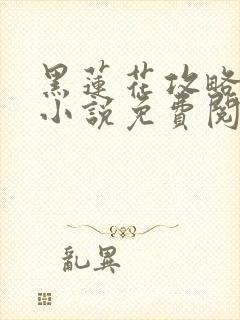 黑蓮花攻略
小說免費閱
亂異